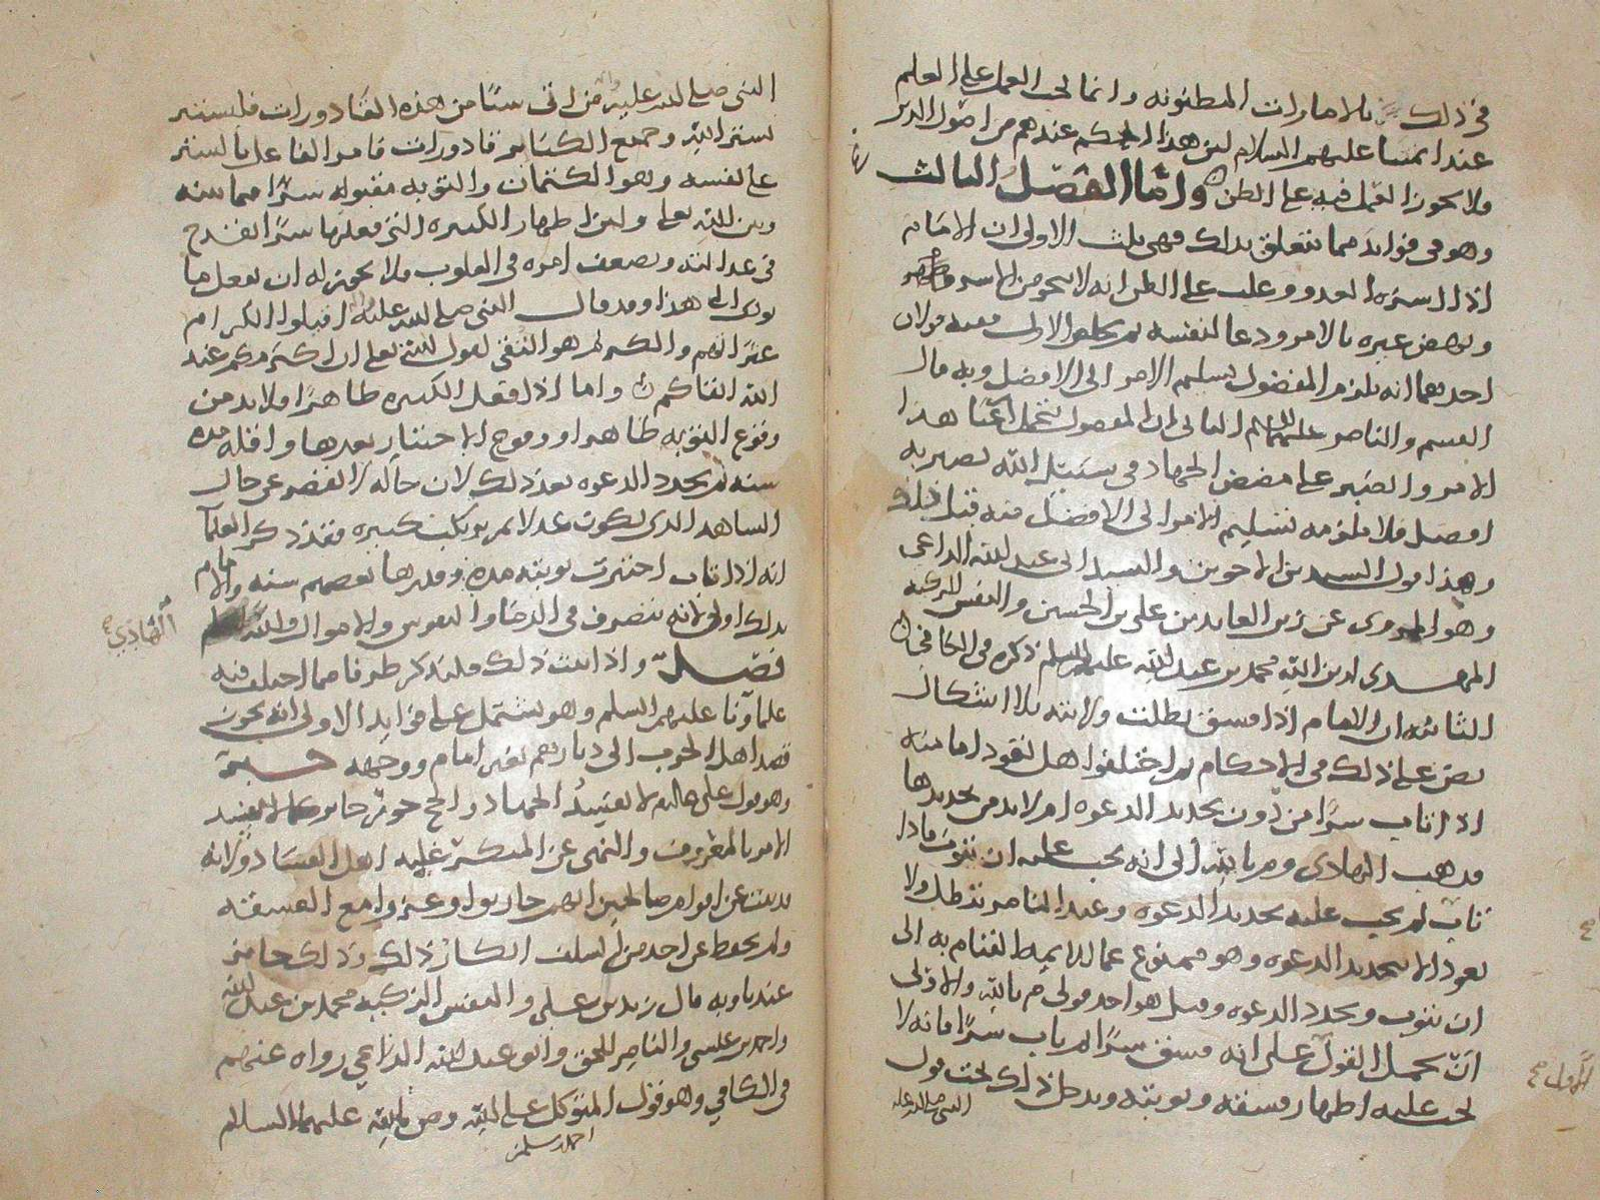 في ذلك بالامارات المظنونه وانما يجب العمل على العلم
عند ائمتنا عليهم السلام لان هذا الحكم عندهم من اصول الدين
ولا يجوز العمل فيه على الظن واما الفصل الثالث
وهو في فوايد مما يتعلق بذلك فهي ثلث الاولى ان الامام
اذا اسره العدو وغلب على الظن انه لا ينجو من الاسر
ونهض غيره بالامر ودعا لنفسه ثم تخلص الاول ففيه قولان
احدهما انه يلزم المفضول تسليم الامر الى الافضل وبه قال
القسم والناصر عليهما السلم الثاني ان المفضول بتحمل اعبا هذا
الامر والصبر على مضض الجهاد في سبيل الله يصير به
افضل فلا يلزمه تسليم الامر الى الافضل منه قبل ذلك
وهذا قول السيدين الاخوين والسيد ابي عبد الله الداعي
وهو المروى عن زين العابدين علي بن الحسين والنفس الزكيه
المهدي لدين الله محمد بن عبد الله عليهم السلم ذكره في الكافي
الثانيه ان الامام اذا فسق بطلت ولايته بلا اشكال
نص على ذلك في الاحكام ثم اختلفوا هل تعود امامته
اذا تاب سرا من دون تجديد الدعوه ام لا بد من تجديدها
فذهب الهادى وم بالله الى انه يجب عليه ان يتوب فاذا
تاب لم يجب عليه تجديد الدعوه وعند الناصر تبطل ولا
تعود الا بتجديد الدعوه وهو ممنوع عما للايمة القيام به الى
ان يتوب ويجدد الدعوه وقيل هو احد قولي م بالله والاولى
ان يحمل القول على انه فسق سرا ثم تاب سرا فانه لا
يجب عليه اظهار فسقه وتوبته ويدخل ذلك تحت قول
النبي صلى الله عليه
الاول
النبي صلى الله عليه من اتى شيئا من هذه القاذورات فليستتر
بستر الله وجميع الكبائر قاذورات فامر الفاعل بالستر
على نفسه وهو الكتمان والتوبه مقبوله سرا فيما بينه
وبين الله تعلى ولان اظهار الكبيره التي فعلها سرا تقدح
في عدالته وتضعف امره في القلوب فلا يجوز له ان يفعل ما
يودي الى هذا وقد قال النبي صلى الله عليه اقيلوا الكرام
عثراتهم والكريم هو التقي لقول الله تعلى ان اكرمكم عند
الله اتقاكم واما اذا فعل الكبيره ظاهرا فلا بد من
وقوع التوبه ظاهرا ووقوع الاختبار بعدها واقله مده
سنه ثم يجدد الدعوه بعد ذلك لان حاله لا تقصر عن حال
الشاهد الذي يكون عدلا ثم يرتكب كبيره فقد ذكر العلما
انه اذا تاب اختبرت توبته مده وقدرها بعضهم سنه والامام
بذلك اولى لانه يتصرف في الدما والنفوس والاموال والله
الهادي
فصل واذا ثبت ذلك فلنذكر طرفا مما اختلف فيه
علماونا عليهم السلم وهو يشتمل على فوايد الاولى انه يجوز
قصد اهل الحرب الى ديارهم بغير امام ووجهه
وهو قول على الامر بالمعروف والنهى عن المنكر
ولم يحفظ عن احد من السلف انكار ذلك وذلك جايز
عندنا وبه قال زيد بن علي والنفس الزكيه محمد بن عبد الله
واحمد بن عيسى والناصر للحق وابو عبد الله الداعي رواه عنهم
في الكافي وهو قول المتوكل على الله وص بالله عليهما السلام
احمد بن سليمن